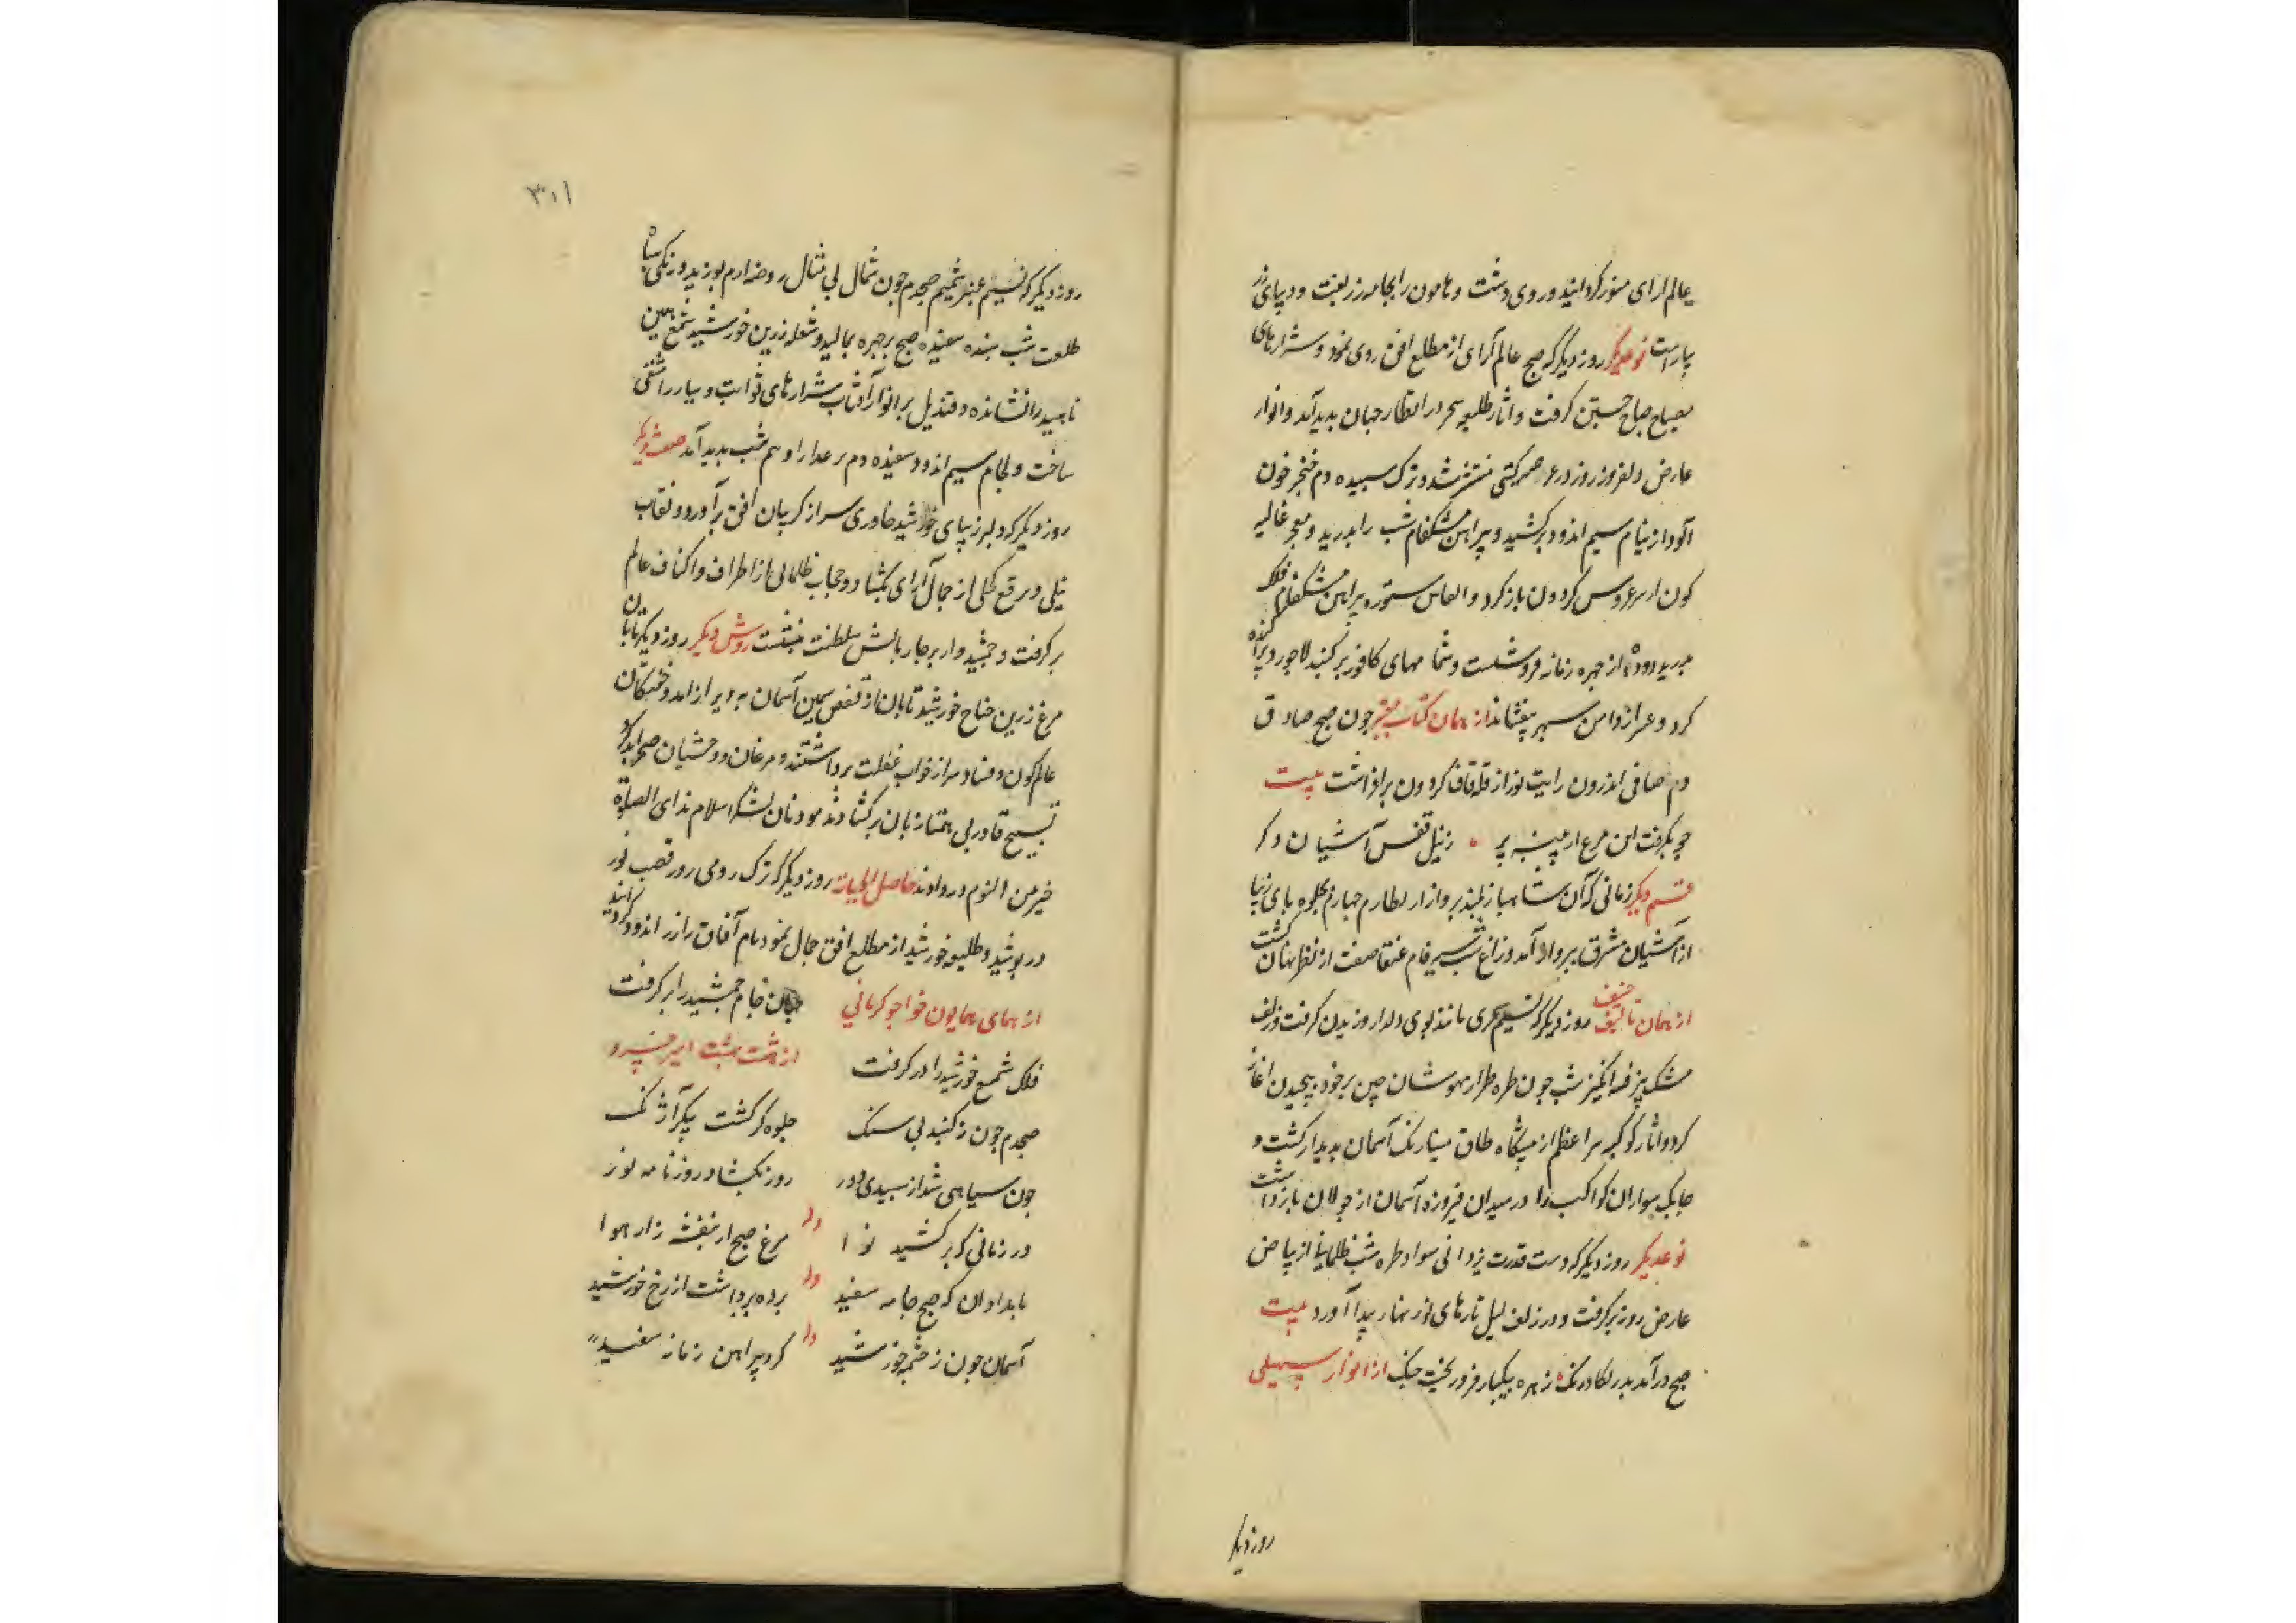 عالم آرای منور کردانید و روی دشت و هامون را بجامه زربفت و دیبای زر
بیاراست نوعدیکر روز دیکر که صبح عالم آرای از مطلع افق روی نمود و شرارهای
مصباح صباح جستن کرفت و اثار طلیعه سحر در اقطار جهان پدید آمد و انوار
عارض دلفروز روز در عرصه کیتی منتشر شد و ترک سپیده دم خنجر خون
آلود از نیام سیم اندود برکشید و پیراهن مشکفام شب را بدرید و معجر غالیه
کون از سر عروس کردون باز کرد و پیراهن مشکفام فلک
از چهره زمانه فروشست و شمامهای کافور بر کنبد لاجورد پراکنده
کرد و عبر از دامن سپهر بیفشاند از همان کتاب معتبر چون صبح صادق
دم صافی اندرون رایت نور از قله قاف کردون برافراشت بیت
چو بکرفت این مرغ پر ز نیلی قفس آشیان دکر
قسم دیکر زمانی که آن شاهباز بلند پرواز از طارم چهارم بجلوه بای زیبا
از آشیان مشرق بپرواز آمد و زاغ شب سیه فام عنقا صفت از نظر نهان کشت
از همان تالیف روز دیکر که نسیم سحری مانند بوی دلدار وزیدن کرفت و زلف
مشک بیز فتنه انکیز شب چون طره طرار مهوشان چین بر خود پیچیدن اغاز
کرد و اثار کوکبه اعظم از پیشکاه طاق مینارنک آسمان پدیدار کشت و
چابک سواران کواکب را در میدان فیروزه آسمان از جولان بازداشت
نوعدیکر روز دیکر که دست قدرت یزدانی سواد طره شب ظلمانی از بیاض
عارض روز برکرفت و در زلف لیل تارهای نور نهار پیدا آورد بیت
صبح درآمد زهره بیکبار فرو ریخت چنک از انوار سهیلی
روز دیکر
۳۰۱
روز دیکر که نسیم عنبر شمیم صبحدم چون شمال بی مثال روضه ارم بوزید و زنکی سیاه
طلعت شب سفیده صبح بر چهره بمالید و شعله زرین خورشید شمع سیمین
ناهید را نشانده و قندیل بر انوار آفتاب شرارهای ثوابت و سیار را
ساخت و لجام سیم اندود سفیده دم بر ادهم شب پدید آمد صفت دیکر
روز دیکر که دلبر زیبای خورشید خاوری سر از کریبان افق برآورد و نقاب
نیلی و برقع کحلی از جمال آرای بکشاد و حجاب ظلمانی از اطراف و اکناف عالم
برکرفت و جمشیدوار بر چار بالش سلطنت بنشست روش دیکر روز دیکر تابان
مرغ زرین جناح خورشید تابان از قفص سیمین آسمان به پرواز امد و خفتکان
عالم کون و فساد سر از خواب غفلت برداشتند و مرغان و وحشیان صحرا بذکر
تسبیح قادر بی همتا زبان برکشادند موذنان لشکر اسلام ندای الصلوة
خیر من النوم در دادند حاصل الحیات روز دیکر که ترک رومی روز قصب نور
در پوشید و طلیعه خورشید از مطلع افق جمال نمود بام آفاق را زر اندود کردانید
از همای همایون خواجو کرمانی جهان جام جمشید را بر کرفت
فلک شمع خورشید را در کرفت از هشت بهشت امیر خسرو
صبحدم چون ز کنبد بی سنک جلوه کر کشت پیکر آژنک
چون سیاهی شد از سپیدی دور روز بکشاد روزنامه نور
در زمانی که برکشید نوا وله مرغ صبح از بنفشه زار هوا
بامدادان که صبح جامه سفید وله پرده برداشت از رخ خورشید
آسمان چون ز چشمه خورشید وله کرد پیراهن زمانه سفید